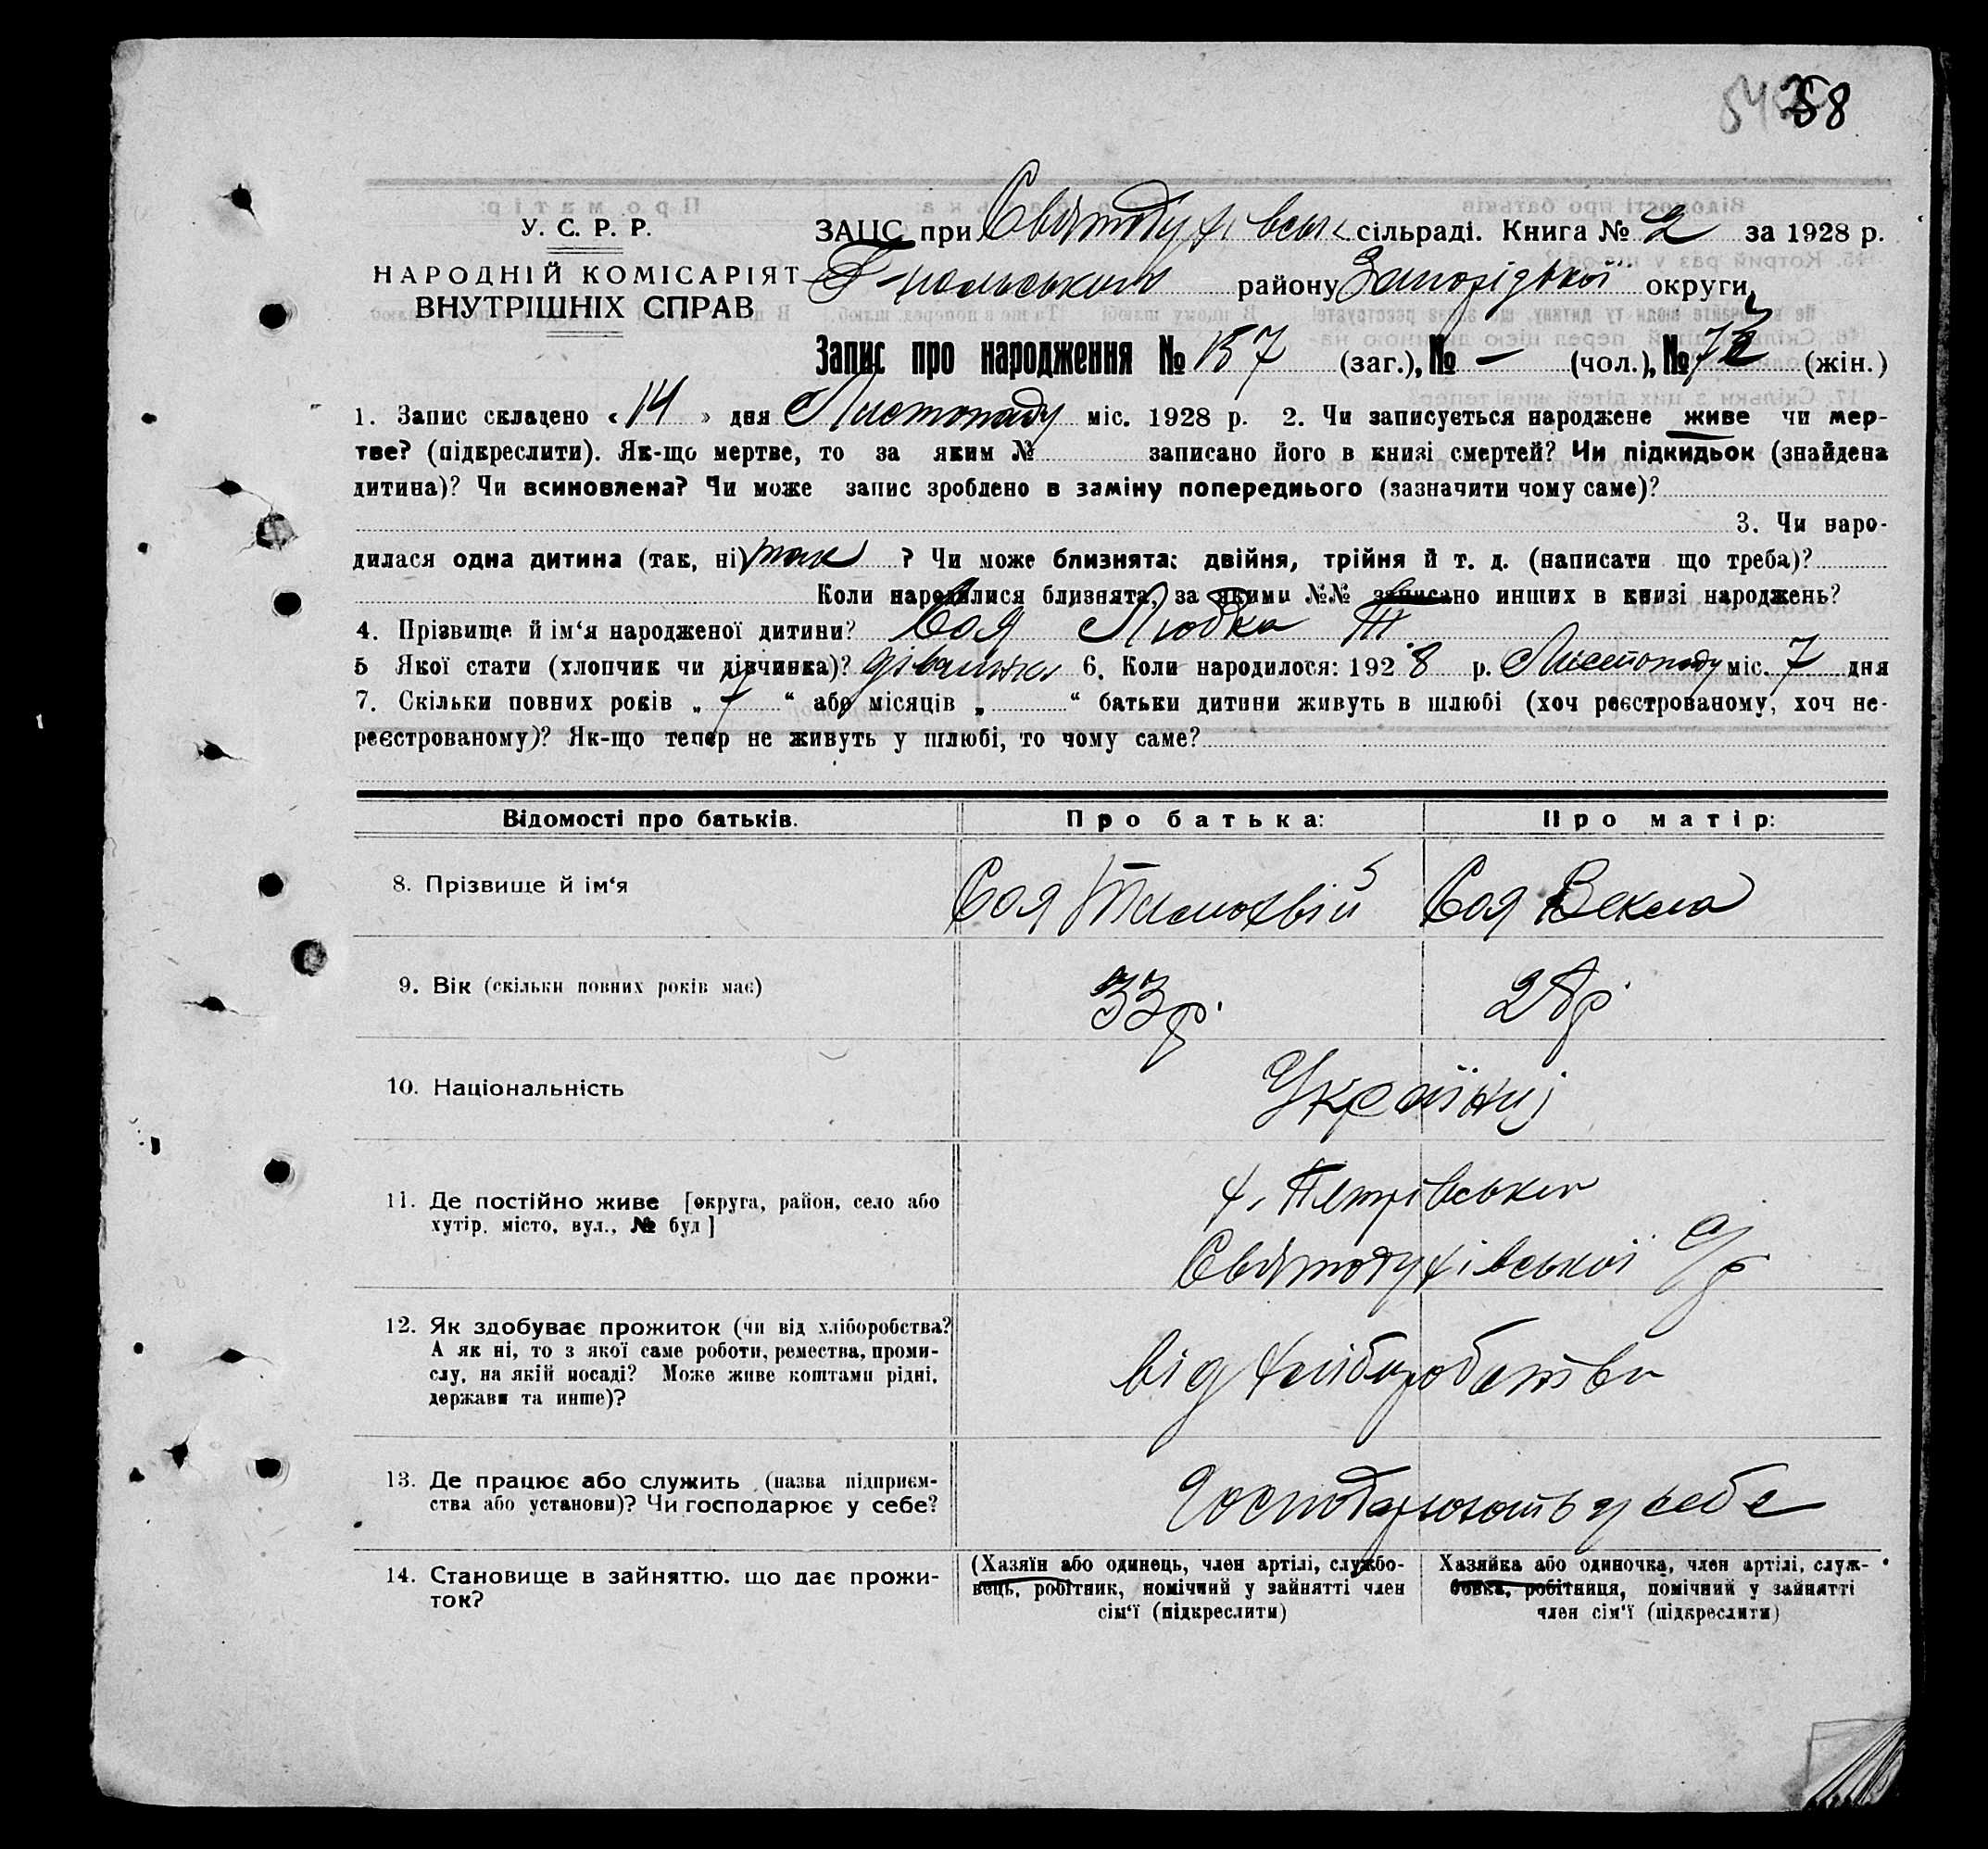 58
У. С. Р. Р.
НАРОДНІЙ КОМІСАРІЯТ
ВНУТРІШНІХ СПРАВ
ЗАЦС при Святодухівськ сільраді. Книга № 2 за 1928 р.
району Запорізької округи
Запис про народження № 157 (заг.), № — (чол.), № 73 (жін.)
1. Запис складено «14» дня Листопаду міс. 1928 р. 2. Чи записується народжене живе чи мер-
тве? (підкреслити). Як-що мертве, то за яким № записано його в книзі смертей? Чи підкидьок (знайдена
дитина)? Чи всиновлена? Чи може запис зроблено в заміну попереднього (зазначити чому саме)?
3. Чи наро-
дилася одна дитина (так, ні) так ? Чи може близнята: двійня, трійня й т. д. (написати що треба)?
Коли народилися близнята, за якими №№ записано инших в книзі народжень?
4. Прізвище й ім‘я народженої дитини? Соя Любка Т
5 Якої стати (хлопчик чи дівчинка)? дівчинка 6. Коли народилося: 1928 р. Листопаду міс. 7 дня
7. Скільки повних років „ 7 “ або місяців „ “ батьки дитини живуть в шлюбі (хоч реєстрованому, хоч не-
реєстрованому)? Як-що тепер не живуть у шлюбі, то чому саме?
Відомості про батьків. Про батька: Про матір:
8. Прізвище й ім‘я Соя Тимофвій Соя Векла
9. Вік (скільки повних років має) 33 р. 28 р.
10. Національність Українці
11. Де постійно живе [округа, район, село або
хутір, місто, вул., № буд]
х. Петрівський
Святодухівської С/р
12. Як здобуває прожиток (чи від хліборобства?
А як ні, то з якої саме роботи, ремества, проми-
слу, на якій посаді? Може живе коштами рідні,
держави та инше)?
від хліборобства
13. Де працює або служить (назва підприєм-
ства або установи)? Чи господарює у себе?
Господарюють у себе
14. Становище в зайняттю, що дає прожи-
ток?
(Хазяїн або одинець, член артілі, службо-
вець, робітник, помічний у зайнятті член
сім‘ї (підкреслити)
Хазяйка або одиночка, член артілі, служ-
бовка, робітниця, помічний у зайнятті
член сім‘ї (підкреслити)